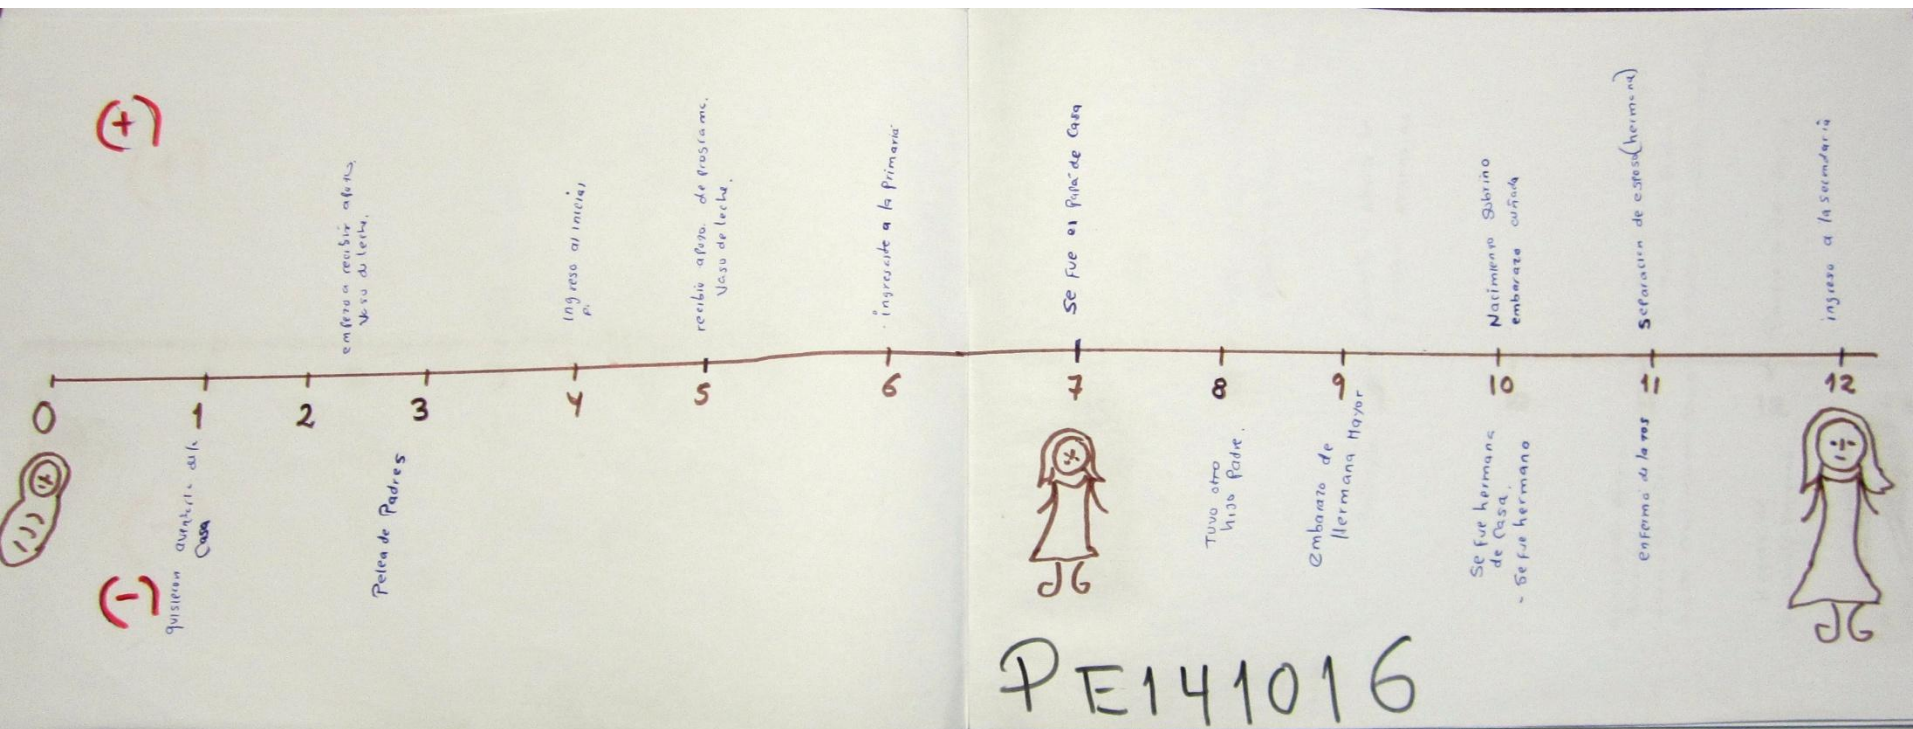 (+)
empezo a recibir apoyo,
vaso de leche.
Ingreso al inicial
P.
recibio apoyo de programa.
Vaso de leche.
. ingresaste a la Primaria
Se fue el Papá de Casa
Nacimiento Sobrino
embarazo cuñada
Separacion de esposo (hermana)
ingreso a la secundaria
0
1
2
3
4
5
6
7
8
9
10
11
12
(-)
quisieron
Casa
Pelea de Padres
Tuvo otro
hijo Padre.
embarazo de
Hermana Mayor
Se fue hermana
de Casa.
- Se fue hermano
enfermo de la tos
PE141016